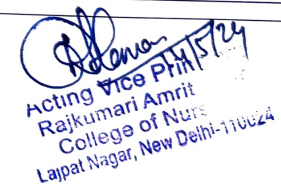 Acting Vice Prin
Rajkumari Amrit
College of Nurs
Lajpat Nagar, New Delhi-110024